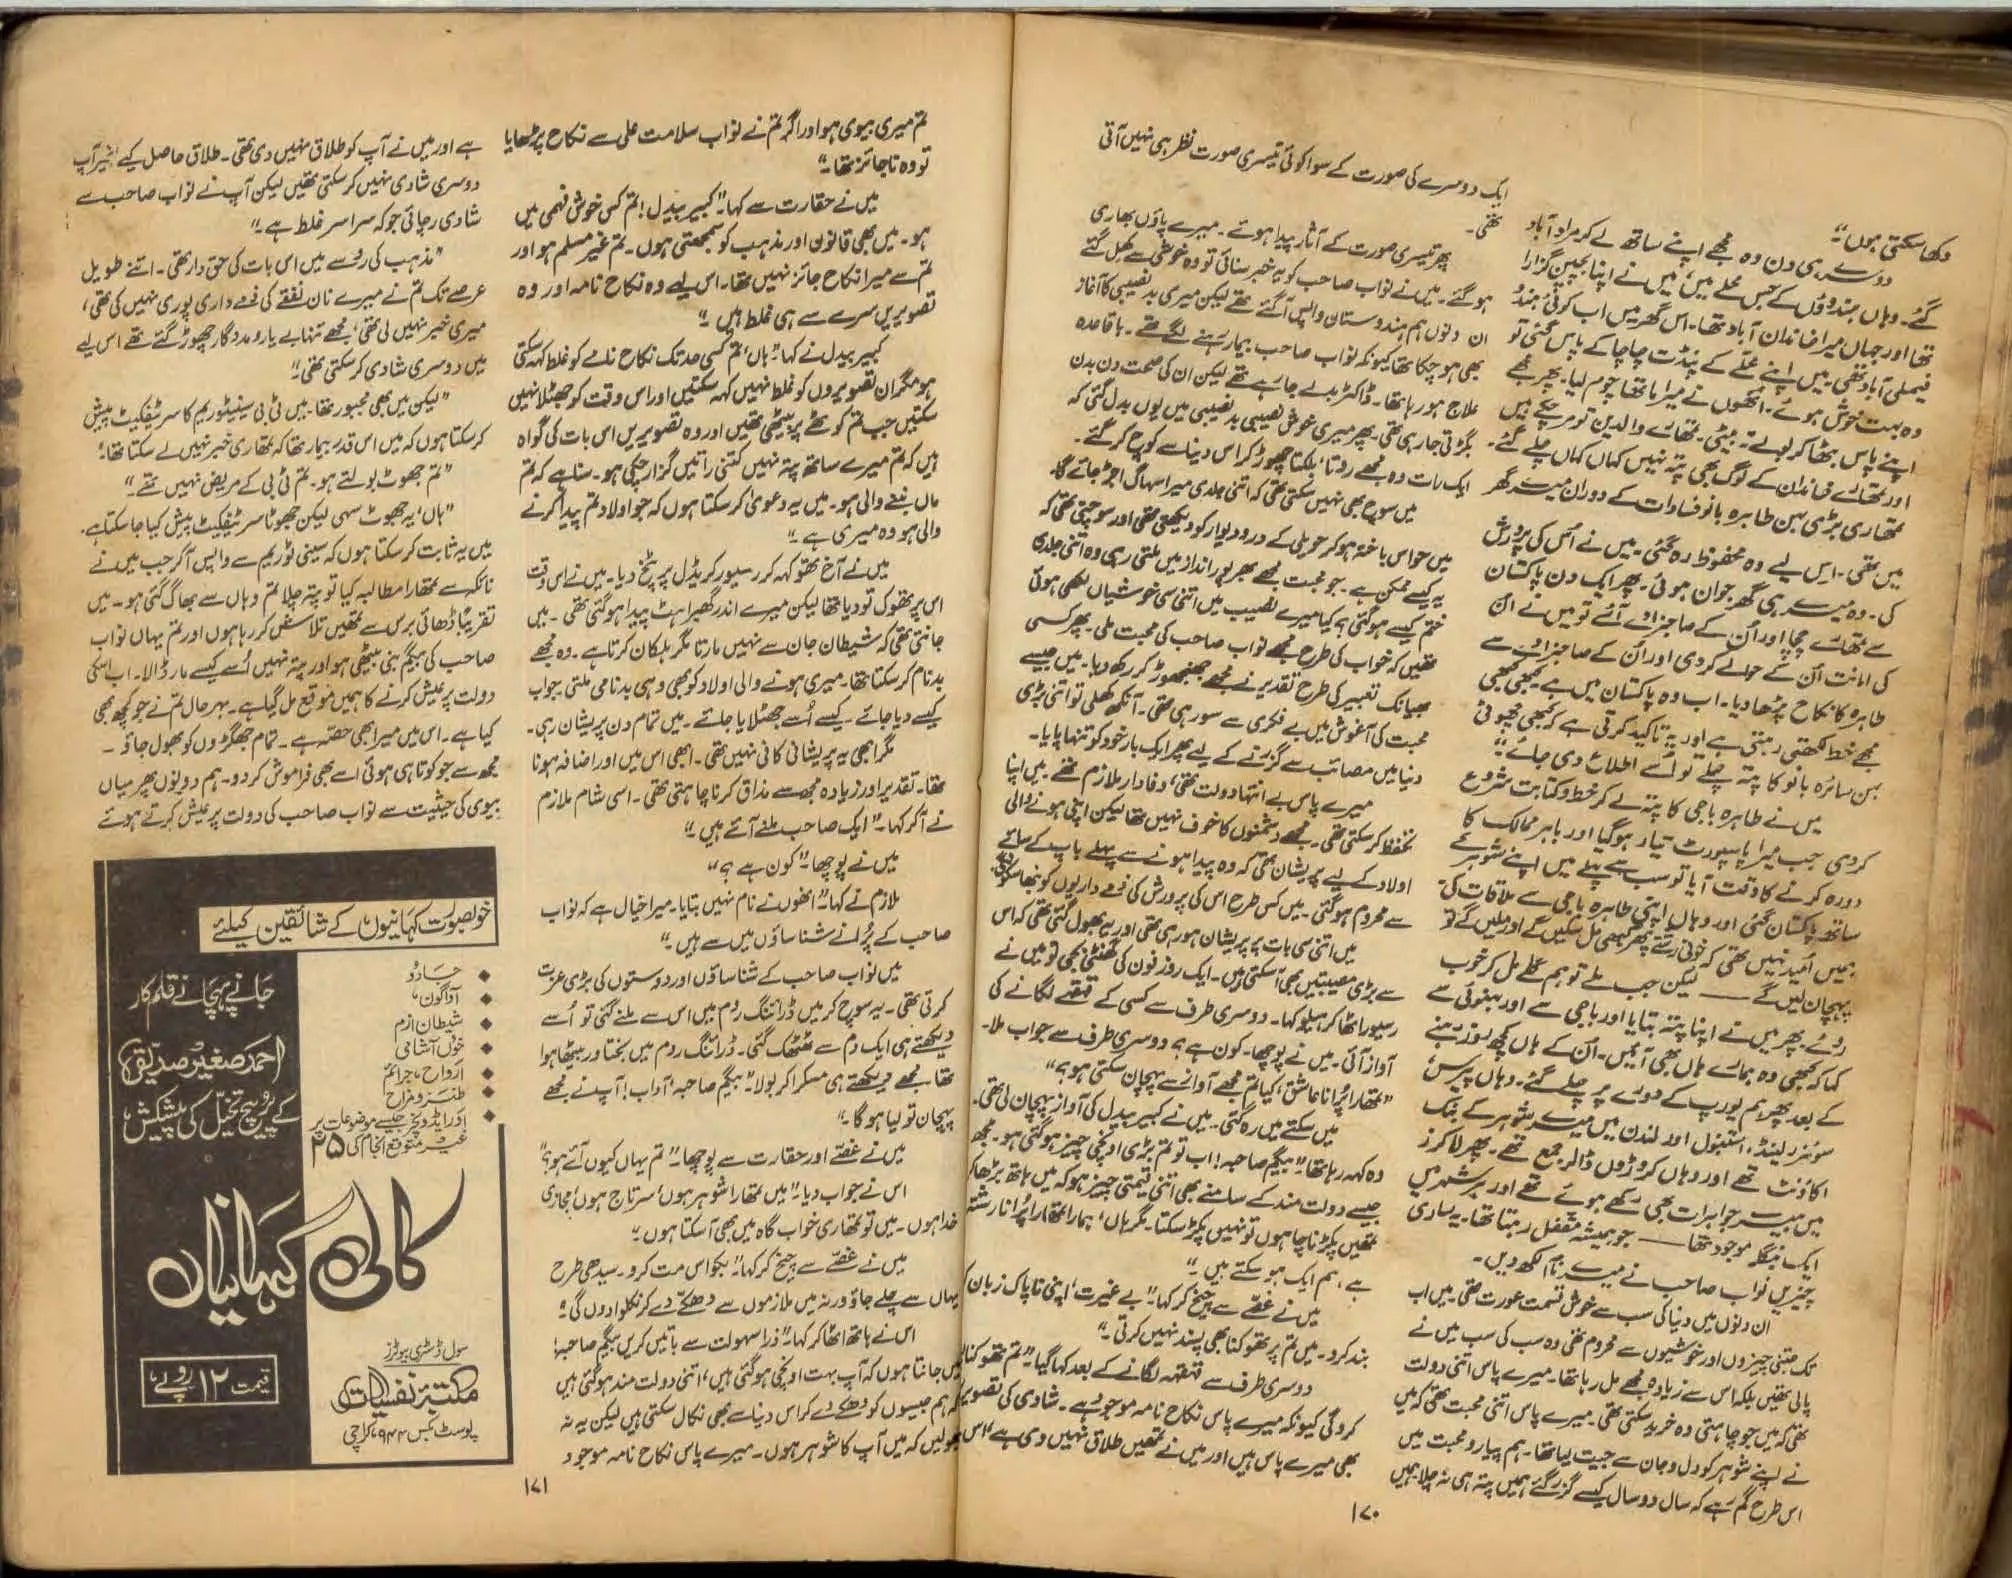 دکھا سکتی ہوں"
دوسرے ہی دن وہ مجھے اپنے ساتھ لے کر مراد آباد
گئے۔ وہاں ہندوؤں کے جس محلے میں، میں نے اپنا بچپن گزارا
تھا اور جہاں میرا خاندان آباد تھا۔ اس گھر میں اب کوئی ہندو
فیملی آباد تھی۔ میں اپنے محلے کے پنڈت چاچا کے پاس گئی تو
وہ بہت خوش ہوئے۔ انھوں نے میرا ماتھا چوم لیا۔ پھر مجھے
اپنے پاس بٹھا کر بولے "بیٹی۔ تمھارے والدین تو مر چکے ہیں
اور تمھارے خاندان کے لوگ بھی پتہ نہیں کہاں کہاں چلے گئے۔
تمھاری بڑی بہن طاہرہ بانو فسادات کے دوران میرے گھر
میں تھی۔ اس لیے وہ محفوظ رہ گئی۔ میں نے اُس کی پرورش
کی۔ وہ میرے ہی گھر جوان ہوئی۔ پھر ایک دن پاکستان
سے تمھارے چچا اور اُن کے صاحبزادے آئے تو میں نے اُن
کی امانت اُن کے حوالے کر دی اور اُن کے صاحبزادے سے
طاہرہ کا نکاح پڑھا دیا۔ اب وہ پاکستان میں ہے۔ کبھی کبھی
مجھے خط لکھتی رہتی ہے اور یہ تاکید کرتی ہے کہ کبھی چھوٹی
بہن سائرہ بانو کا پتہ چلے تو اُسے اطلاع دی جائے"
میں نے طاہرہ باجی کا پتہ لے کر خط و کتابت شروع
کر دی جب میرا پاسپورٹ تیار ہو گیا اور باہر ممالک کا
دورہ کرنے کا وقت آیا تو سب سے پہلے میں اپنے شوہر کے
ساتھ پاکستان گئی اور وہاں اپنی طاہرہ باجی سے ملاقات کی
ہمیں اُمید نہیں تھی کہ خونی رشتے پھر کبھی مل سکیں گے اور ملیں گے تو
پہچان لیں گے —— لیکن جب ملے تو ہم گلے مل کر خوب
روئے۔ پھر میں نے اپنا پتہ بتایا اور باجی سے اور بہنوئی سے
کہا کہ کبھی وہ ہمارے ہاں بھی آئیں۔ اُن کے ہاں کچھ روز رہنے
کے بعد پھر ہم یورپ کے دورے پر چلے گئے۔ وہاں پیرس،
سوئزر لینڈ، استنبول اور لندن میں میرے شوہر کے بنک
اکاؤنٹ تھے اور وہاں کروڑوں ڈالر جمع تھے۔ پھر لاکرز
میں ہیرے جواہرات بھی رکھے ہوئے تھے اور ہر شہر میں
ایک بنگلہ موجود تھا —— جو ہمیشہ مقفل رہتا تھا۔ یہ ساری
چیزیں نواب صاحب نے میرے نام لکھ دیں۔
ان دنوں میں دنیا کی سب سے خوش قسمت عورت تھی۔ میں اب
تک جتنی چیزوں اور خوشیوں سے محروم تھی وہ سب کی سب میں نے
پالی تھیں بلکہ اس سے زیادہ مجھے مل رہا تھا۔ میرے پاس اتنی دولت
تھی کہ میں جو چاہتی وہ خرید سکتی تھی۔ میرے پاس اتنی محبت تھی کہ میں
نے اپنے شوہر کو دل و جان سے جیت لیا تھا۔ ہم پیار و محبت میں
اس طرح گم رہے کہ سال دو سال کیسے گزر گئے ہمیں پتہ ہی نہ چلا ہمیں
ایک دوسرے کی صورت کے سوا کوئی تیسری صورت نظر ہی نہیں آتی
تھی۔
پھر تیسری صورت کے آثار پیدا ہوئے۔ میرے پاؤں بھاری
ہو گئے۔ میں نے نواب صاحب کو یہ خبر سنائی تو وہ خوشی سے کھل گئے
ان دنوں ہم ہندوستان واپس آ گئے تھے لیکن میری بدنصیبی کا آغاز
بھی ہو چکا تھا کیونکہ نواب صاحب بیمار رہنے لگے تھے۔ باقاعدہ
علاج ہو رہا تھا۔ ڈاکٹر بدلے جا رہے تھے لیکن ان کی صحت دن بدن
بگڑتی جا رہی تھی۔ پھر میری خوش نصیبی بدنصیبی میں یوں بدل گئی کہ
ایک رات وہ مجھے روتا، بلکتا چھوڑ کر اس دنیا سے کوچ کر گئے۔
میں سوچ بھی نہیں سکتی تھی کہ اتنی جلدی میرا سہاگ اجڑ جائے گا۔
میں حواس باختہ ہو کر حویلی کے در و دیوار کو دیکھتی تھی اور سوچتی تھی کہ
یہ کیسے ممکن ہے۔ جو محبت مجھے بھرپور انداز میں ملتی رہی وہ اتنی جلدی
ختم کیسے ہو گئی؟ کیا میرے نصیب میں اتنی سی خوشیاں لکھی ہوئی
تھیں کہ خواب کی طرح مجھے نواب صاحب کی محبت ملی۔ پھر کسی
بھیانک تعبیر کی طرح تقدیر نے مجھے جھنجھوڑ کر رکھ دیا۔ میں جیسے
محبت کی آغوش میں بے فکری سے سو رہی تھی۔ آنکھ کھلی تو اتنی بڑی
دنیا میں مصائب سے گزرنے کے لیے پھر ایک بار خود کو تنہا پایا۔
میرے پاس بے انتہا دولت تھی، وفادار ملازم تھے۔ میں اپنا
تحفظ کر سکتی تھی۔ مجھے دشمنوں کا خوف نہیں تھا لیکن اپنی ہونے والی
اولاد کے لیے پریشان تھی کہ وہ پیدا ہونے سے پہلے باپ کے سائے
سے محروم ہو گئی۔ میں کس طرح اس کی پرورش کی ذمے داریوں کو نبھا سکوں گی؟
میں اتنی سی بات پر پریشان ہو رہی تھی اور یہ بھول گئی تھی کہ اس
سے بڑی مصیبتیں بھی آ سکتی ہیں۔ ایک روز فون کی گھنٹی بجی تو میں نے
رسیور اٹھا کر ہیلو کہا۔ دوسری طرف سے کسی کے قہقہے لگانے کی
آواز آئی۔ میں نے پوچھا۔ کون ہے؟ دوسری طرف سے جواب ملا۔
"تمھارا پُرانا عاشق، کیا تم مجھے آواز سے پہچان سکتی ہو؟"
میں سکتے میں رہ گئی۔ میں نے کبیر بیدل کی آواز پہچان لی تھی۔
وہ کہہ رہا تھا "بیگم صاحبہ! اب تو تم بڑی اونچی چیز ہو گئی ہو۔ مجھ
جیسے دولت مند کے سامنے بھی اتنی قیمتی چیز ہو کہ میں ہاتھ بڑھا کر
تمھیں پکڑنا چاہوں تو نہیں پکڑ سکتا۔ مگر ہاں، ہمارا تمھارا پُرانا رشتہ
ہے، ہم ایک ہو سکتے ہیں۔"
میں نے غصے سے چیخ کر کہا۔ "بے غیرت، اپنی ناپاک زبان کو
بند کرو۔ میں تم پر تھوکنا بھی پسند نہیں کرتی۔"
دوسری طرف سے قہقہہ لگانے کے بعد کہا گیا "تم تھوکنا
کرو گی کیونکہ میرے پاس نکاح نامہ موجود ہے۔ شادی کی تصویر
بھی میرے پاس ہیں اور میں نے تمھیں طلاق نہیں دی ہے، اس
۱۷۰
تم میری بیوی ہو اور اگر تم نے نواب سلامت علی سے نکاح پڑھایا
تو وہ ناجائز تھا۔"
میں نے حقارت سے کہا۔ "کبیر بیدل! تم کس خوش فہمی میں
ہو۔ میں بھی قانون اور مذہب کو سمجھتی ہوں۔ تم غیر مسلم ہو اور
تم سے میرا نکاح جائز نہیں تھا۔ اس لیے وہ نکاح نامہ اور وہ
تصویریں سرے سے ہی غلط ہیں۔"
کبیر بیدل نے کہا۔ "ہاں، تم کسی حد تک نکاح نامے کو غلط کہہ سکتی
ہو مگر ان تصویروں کو غلط نہیں کہہ سکتیں اور اس وقت کو جھٹلا نہیں
سکتیں جب تم کوٹھے پر بیٹھی تھیں اور وہ تصویریں اس بات کی گواہ
ہیں کہ تم میرے ساتھ پتہ نہیں کتنی راتیں گزار چکی ہو۔ سنا ہے کہ تم
ماں بننے والی ہو۔ میں یہ دعویٰ کر سکتا ہوں کہ جو اولاد تم پیدا کرنے
والی ہو وہ میری ہے۔"
میں نے آخ تھو کہہ کر رسیور کریڈل پر پٹخ دیا۔ میں نے اس وقت
اس پر تھوک تو دیا تھا لیکن میرے اندر گھبراہٹ پیدا ہو گئی تھی۔ میں
جانتی تھی کہ شیطان جان سے نہیں مارتا مگر ہلکان کرتا ہے۔ وہ مجھے
بدنام کر سکتا تھا۔ میری ہونے والی اولاد کو بھی وہی بدنامی ملتی جواب
کیسے دیا جائے۔ کیسے اُسے جھٹلایا جائے۔ میں تمام دن پریشان رہی۔
مگر ابھی یہ پریشانی کافی نہیں تھی۔ ابھی اس میں اور اضافہ ہونا
تھا۔ تقدیر اور زیادہ مجھ سے مذاق کرنا چاہتی تھی۔ اسی شام ملازم
نے آ کر کہا۔ "ایک صاحب ملنے آئے ہیں۔"
میں نے پوچھا۔ "کون ہے؟"
ملازم نے کہا۔ "انھوں نے نام نہیں بتایا۔ میرا خیال ہے کہ نواب
صاحب کے پُرانے شناساؤں میں سے ہیں۔"
میں نواب صاحب کے شناساؤں اور دوستوں کی بڑی عزت
کرتی تھی۔ یہ سوچ کر میں ڈرائنگ روم میں اس سے ملنے گئی تو اُسے
دیکھتے ہی ایک دم سے ٹھٹھک گئی۔ ڈرائنگ روم میں بختاور بیٹھا ہوا
تھا مجھے دیکھتے ہی مسکرا کر بولا۔ "بیگم صاحبہ! آداب! آپ نے مجھے
پہچان تو لیا ہو گا۔"
میں نے غصے اور حقارت سے پوچھا۔ "تم یہاں کیوں آئے ہو؟"
اس نے جواب دیا۔ "میں تمھارا شوہر ہوں، سرتاج ہوں، مجازی
خدا ہوں۔ میں تو تمھاری خواب گاہ میں بھی آ سکتا ہوں۔"
میں نے غصے سے چیخ کر کہا۔ "بکواس مت کرو۔ سیدھی طرح
یہاں سے چلے جاؤ ورنہ میں ملازموں سے دھکے دے کر نکلوا دوں گی۔"
اس نے ہاتھ اٹھا کر کہا۔ "ذرا سہولت سے باتیں کریں بیگم صاحبہ!
میں جانتا ہوں کہ آپ بہت اونچی ہو گئی ہیں، اتنی دولت مند ہو گئی ہیں
کہ ہم جیسوں کو دھکے دے کر اس دنیا سے بھی نکال سکتی ہیں لیکن یہ نہ
بھولیں کہ میں آپ کا شوہر ہوں۔ میرے پاس نکاح نامہ موجود
ہے اور میں نے آپ کو طلاق نہیں دی تھی۔ طلاق حاصل کیے بغیر آپ
دوسری شادی نہیں کر سکتی تھیں لیکن آپ نے نواب صاحب سے
شادی رچائی جو کہ سراسر غلط ہے۔"
"مذہب کی رو سے میں اس بات کی حق دار تھی۔ اتنے طویل
عرصے تک تم نے میرے نان نفقے کی ذمے داری پوری نہیں کی تھی،
میری خبر نہیں لی تھی، مجھے تنہا بے یارو مددگار چھوڑ گئے تھے اس لیے
میں دوسری شادی کر سکتی تھی۔"
"لیکن میں بھی مجبور تھا۔ میں ٹی بی سینیٹوریم کا سرٹیفکیٹ پیش
کر سکتا ہوں کہ میں اس قدر بیمار تھا کہ تمھاری خبر نہیں لے سکتا تھا۔"
"تم جھوٹ بولتے ہو۔ تم ٹی بی کے مریض نہیں تھے۔"
"ہاں، یہ جھوٹ سہی لیکن جھوٹا سرٹیفکیٹ پیش کیا جا سکتا ہے۔
میں یہ ثابت کر سکتا ہوں کہ سینی ٹوریم سے واپس آ کر جب میں نے
نائکہ سے تمھارا مطالبہ کیا تو پتہ چلا تم وہاں سے بھاگ گئی ہو۔ میں
تقریباً ڈھائی برس سے تمھیں تلاش کر رہا ہوں اور تم یہاں نواب
صاحب کی بیگم بنی بیٹھی ہو اور پتہ نہیں اُسے کیسے مار ڈالا۔ اب اسکی
دولت پر عیش کرنے کا ہمیں موقع مل گیا ہے۔ بہر حال تم نے جو کچھ بھی
کیا ہے۔ اس میں میرا بھی حصّہ ہے۔ تمام جھگڑوں کو بھول جاؤ۔
مجھ سے جو کوتاہی ہوئی اسے بھی فراموش کر دو۔ ہم دونوں پھر میاں
بیوی کی حیثیت سے نواب صاحب کی دولت پر عیش کرتے ہوئے
خوبصورت کہانیوں کے شائقین کیلئے
جانے پہچانے قلمکار
احمد صغیر صدیقی
کے پیچ پیچ تخیّل کی پیشکش،
جادُو
آواگون،
شیطان ازم
خوں آشامی
ارواح، جرائم
طنز و مزاح
اور ایڈونچر جیسے موضوعات پر
غیر متوقع انجام کی ۳۵
کالی کہانیاں
قیمت ۱۲ روپے،
سول ڈسٹری بیوٹرز
مکتبۂ نفسیات
پوسٹ بکس ۹۴۴، کراچی
۱۷۱